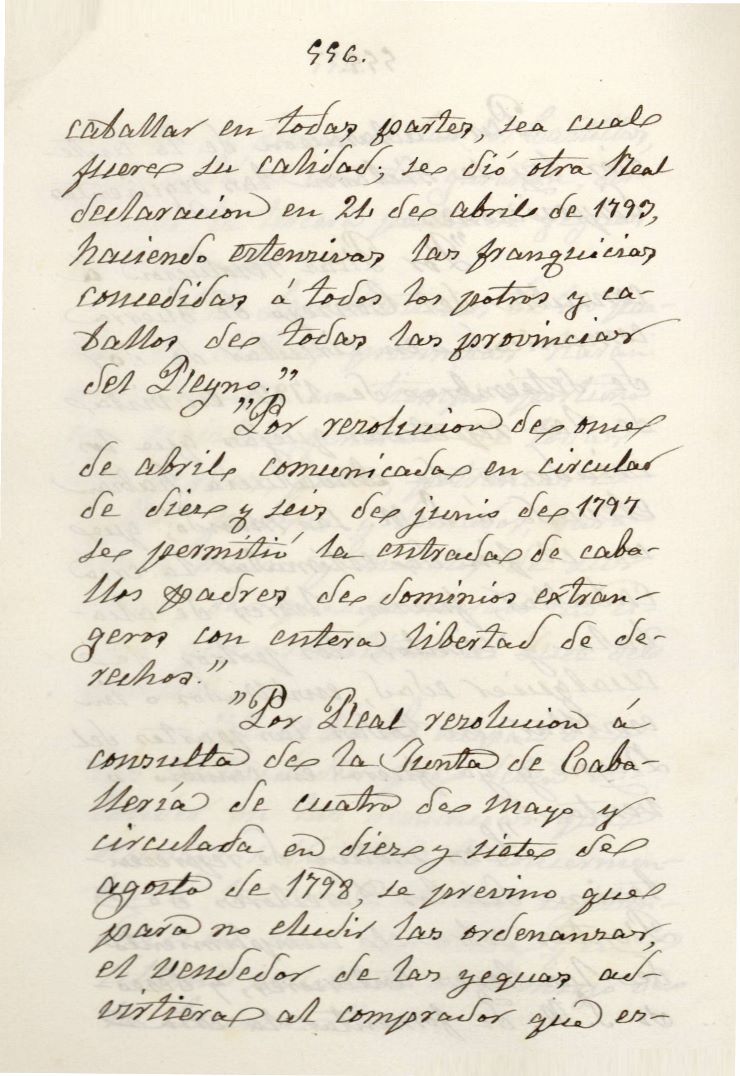 556.
caballar en todas partes, sea cual
fuere su calidad; se dió otra Real
declaracion en 21 de abril de 1793,
haciendo estensivas las franquicias
concedidas á todos los potros y ca-
ballos de todas las provincias
del Reyno."
"Por resolucion de once
de abril comunicada en circular
de diez y seis de junio de 1797
se permitió la entrada de caba-
llos padres de dominios extran-
geros con entera libertad de de-
rechos."
"Por Real resolucion á
consulta de la Junta de Caba-
llería de cuatro de mayo y
circulada en diez y siete de
agosto de 1798, se previno que
para no eludir las ordenanzas,
el vendedor de las yeguas ad-
virtiera al comprador que es-